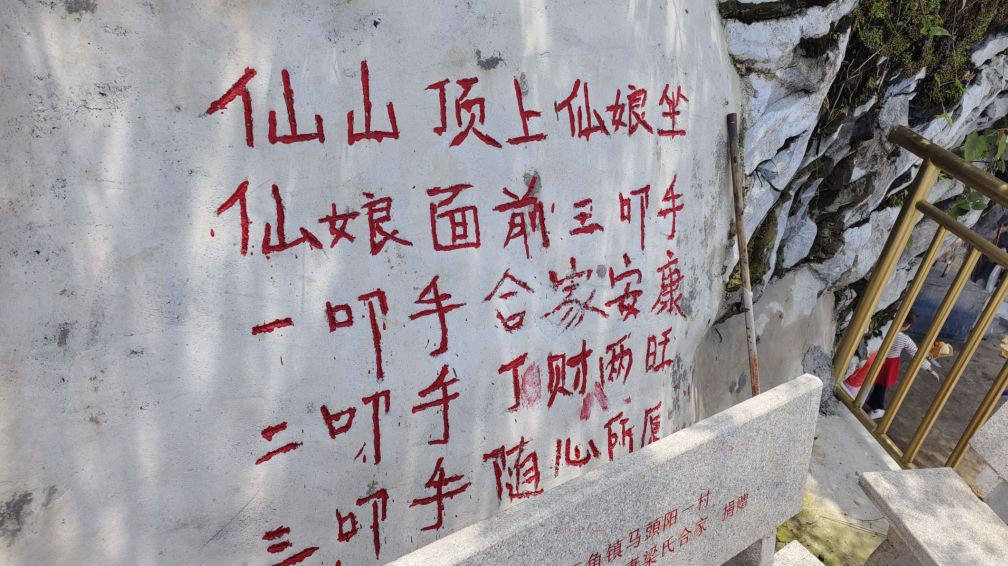 仙山顶上仙娘坐
仙娘面前三叩手
一叩手合家安康
二叩手丁财两旺
三叩手随心所愿
镇马頭阳一村
梁氏合家 捐赠